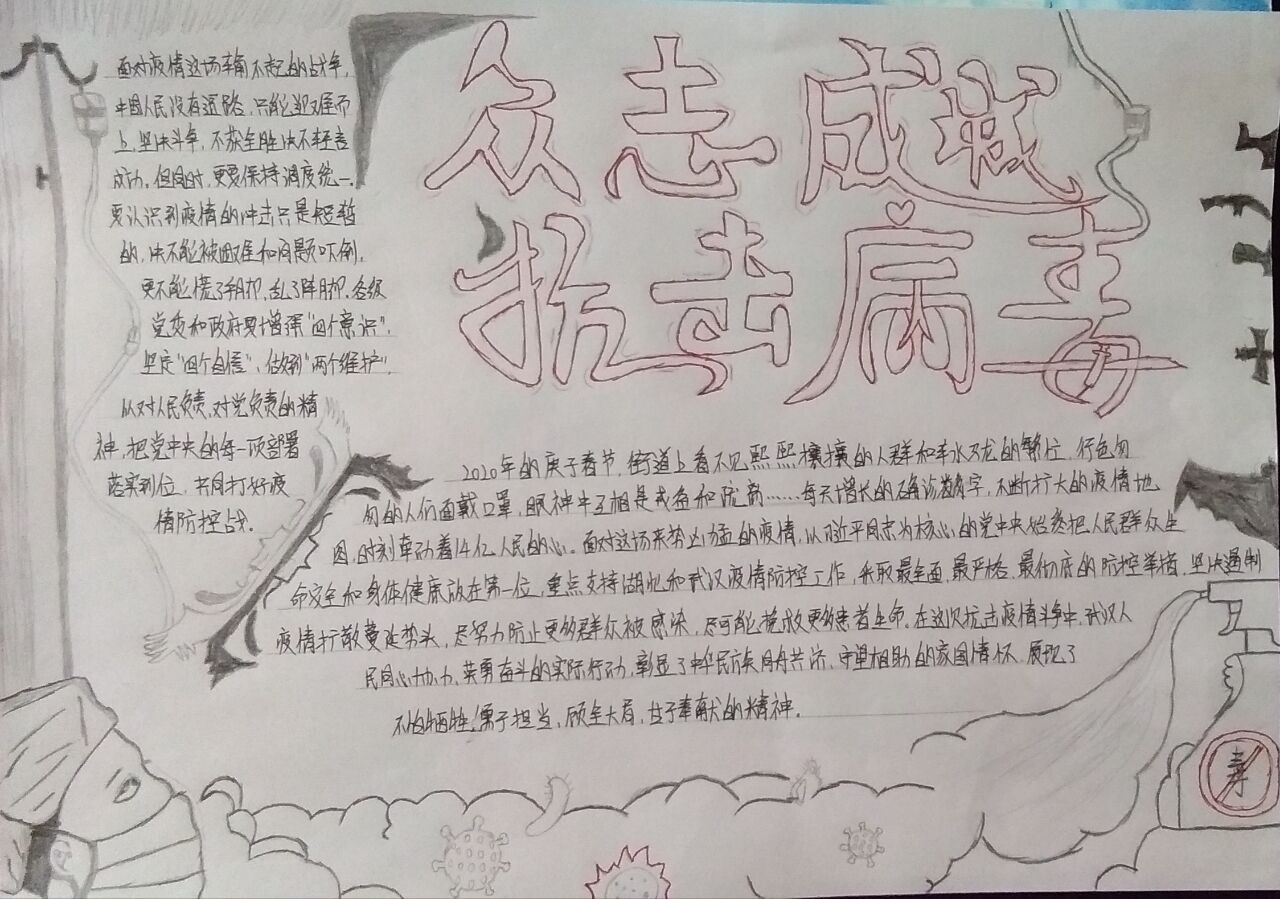 众志成城
抗击病毒
面对疫情这场输不起的战争，
中国人民没有退路，只能迎难而
上，坚决斗争，不获全胜决不轻言
成功。但同时，更要保持调度统一。
要认识到疫情的冲击只是短暂
的，决不能被困难和问题吓倒，
更不能慌了手脚，乱了阵脚。各级
党委和政府要增强"四个意识"，
坚定"四个自信"，做到"两个维护"，
从对人民负责，对党负责的精
神，把党中央的每一项部署
落实到位，共同打好疫
情防控战。
2020年的庚子春节，街道上看不见熙熙攘攘的人群和车水马龙的繁忙，行色匆
匆的人们面戴口罩，眼神中互相是戒备和防范……每天增长的确诊数字，不断扩大的疫情地
图，时刻牵动着14亿人民的心。面对这场来势凶猛的疫情，以习近平同志为核心的党中央始终把人民群众生
命安全和身体健康放在第一位，重点支持湖北和武汉疫情防控工作，采取最全面，最严格，最彻底的防控举措，坚决遏制
疫情扩散蔓延势头，尽努力防止更多群众被感染，尽可能挽救更多患者生命。在这次抗击疫情斗争中，武汉人
民同心协力，英勇奋斗的实际行动，彰显了中华民族同舟共济，守望相助的家国情怀，展现了
不怕牺牲，勇于担当，顾全大局，甘于奉献的精神。
毒